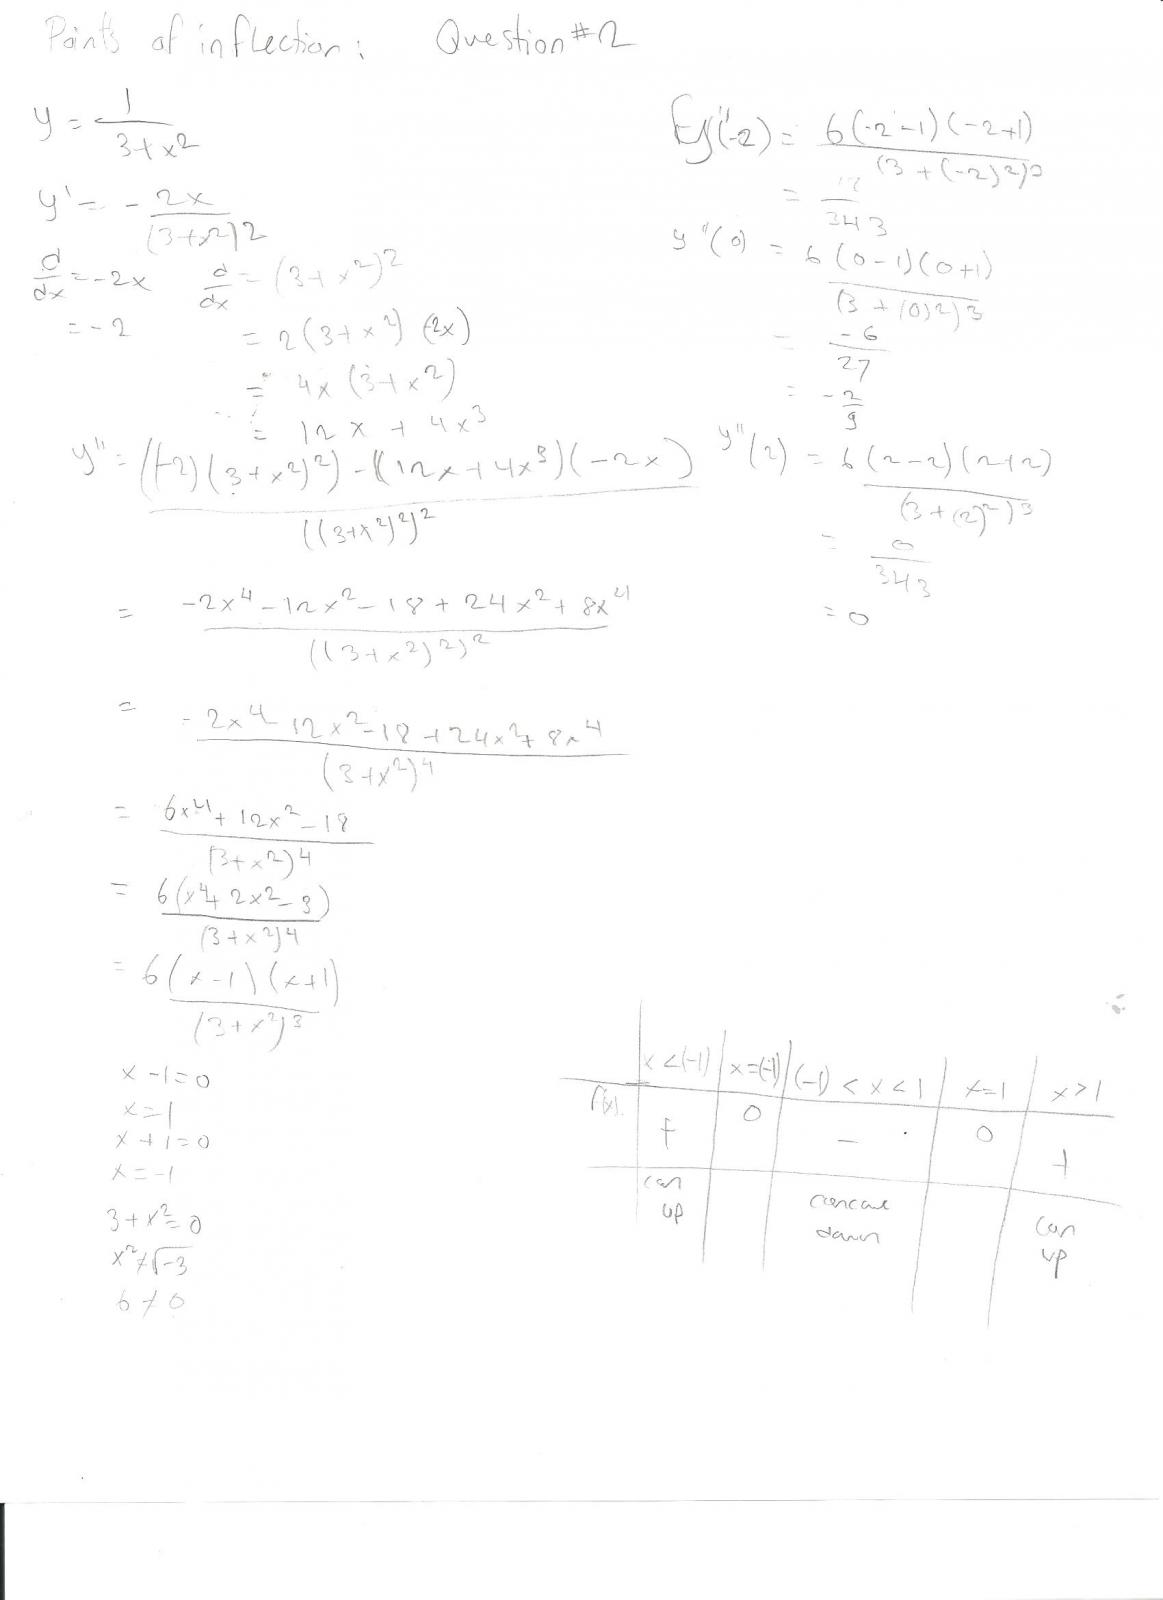 Points of inflection: Question #2
y = 1/(3+x²)
y' = - 2x/(3+x²)2
d/dx = -2x    d/dx = (3+x²)²
= -2    = 2(3+x²)(2x)
= 4x(3+x²)
= 12x + 4x³
y'' = ((-2)(3+x²)²) - ((12x+4x³)(-2x)/((3+x²)²)²
= -2x⁴ - 12x² - 18 + 24x² + 8x⁴/((3+x²)²)²
= -2x⁴ 12x² - 18 + 24x² + 8x⁴/(3+x²)⁴
= 6x⁴ + 12x² - 18/(3+x²)⁴
= 6(x⁴+2x²-3)/(3+x²)⁴
= 6(x-1)(x+1)/(3+x²)³
x - 1 = 0
x = 1
x + 1 = 0
x = -1
3 + x² = 0
x² ≠ √-3
6 ≠ 0
y''(-2) = 6(-2-1)(-2+1)/(3+(-2)²)³
= /343
y''(0) = 6(0-1)(0+1)/(3+(0)2)3
= -6/27
= -2/9
y''(2) = 6(2-2)(2+2)/(3+(2)²)³
= 0/343
= 0
x<(-1) x=(-1) (-1)<x<1 x=1 x>1
f(x). + 0 - 0 +
con up concave down con up